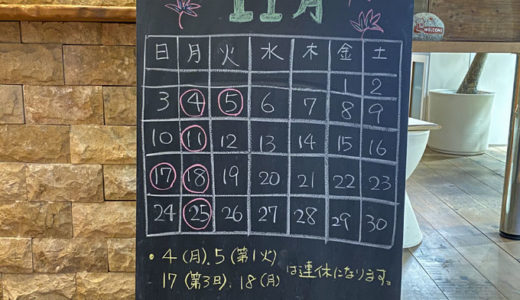 11月
WELCOME
日 月 火 水 木 金 土
1 2
3 4 5 6 7 8 9
10 11 12 13 14 15 16
17 18 19 20 21 22 23
24 25 26 27 28 29 30
• 4(月)、5(第1火)
17(第3日)、18(月) は連休になります。